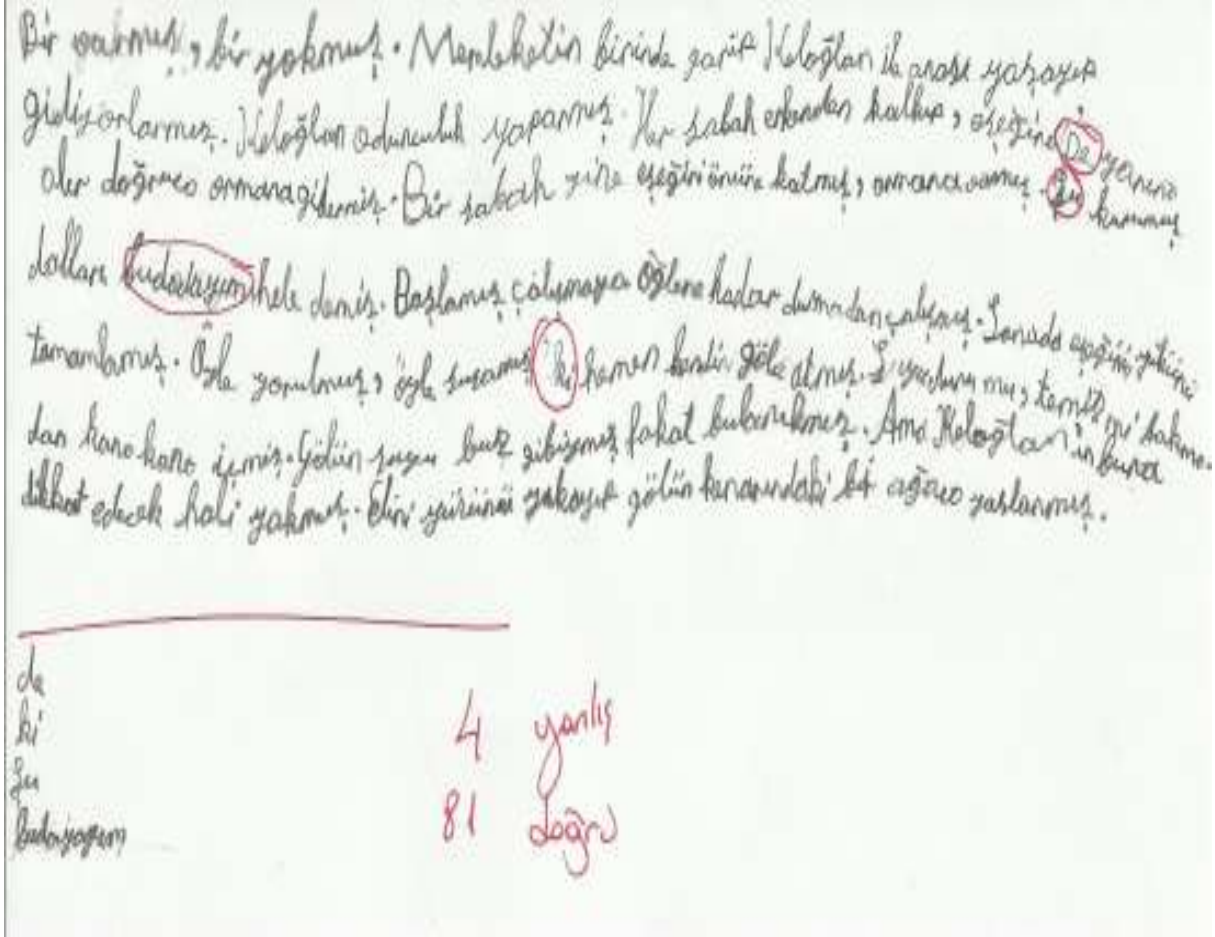 Bir varmış, bir yokmuş. Memleketin birinde garip Keloğlan ile anası yaşayıp
gidiyorlarmış. Keloğlan odunculuk yaparmış. Her sabah erkenden kalkıp, eşeğini De yanına
alır doğruca ormana gidermiş. Bir sabah yine eşeğini önüne katmış, ormana varmış. Şu kurumuş
dalları budadayım hele demiş. Başlamış çalışmaya öğlene kadar durmadan çalışmış. Sonunda eşeğin yükünü
tamamlamış. Öyle yorulmuş, öyle susamış ki hemen kendini göle atmış. mu, temiz mi bakma-
dan kana kana içmiş. Gölün suyu buz gibiymiş fakat bulanıkmış. Ama Keloğlan'ın buna
dikkat edecek hali yokmuş. Elini yüzünü yıkayıp gölün kenarındaki bir ağaca yaslanmış.
de
ki
Şu
budayayım
4 yanlış
81 doğru